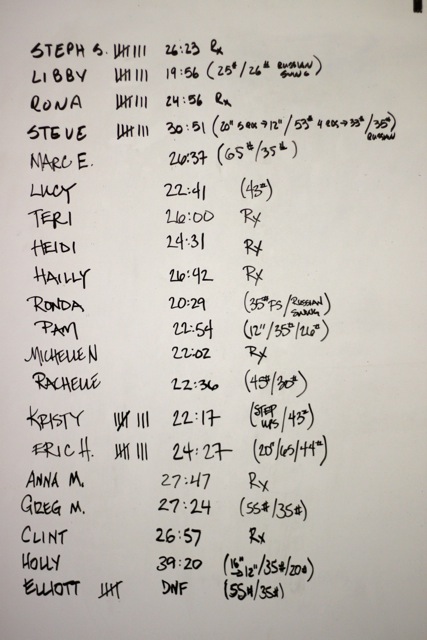 STEPH S. 𝍸 III 26:23 Rx
LIBBY 𝍸 III 19:56 (25#/26# RUSSIAN SWING)
RONA 𝍸 III 24:56 Rx
STEVE 𝍸 III 30:51 (20" 5 RDS → 12"/53# 4 RDS → 35#/35# RUSSIAN)
MARC E. 26:37 (65#/35#)
LUCY 22:41 (43#)
TERI 26:00 Rx
HEIDI 24:31 Rx
HAILLY 26:42 Rx
RONDA 20:29 (35# FS/RUSSIAN SWING)
PAM 22:54 (12"/35#/26#)
MICHELLE N 22:02 Rx
RACHELLE 22:36 (45#/30#)
KRISTY 𝍸 III 22:17 (STEP UPS/43#)
ERIC H. 𝍸 III 24:27 (20"/65/44#)
ANNA M. 27:47 Rx
GREG M. 27:24 (55#/35#)
CLINT 26:57 Rx
HOLLY 39:20 (16" → 12"/35#/20#)
ELLIOTT 𝍸 DNF (55#/35#)